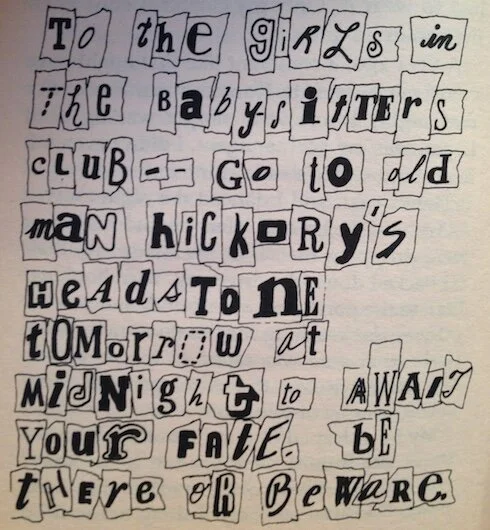 To the giRLs in
The Baby-sitTERs
cLuB-- Go to old
maN hiCKoRy's
HeAdsToNE
tOMorrow at
MidNight to AWAIT
Your FAtE. bE
tHEre oR BeWaRE.